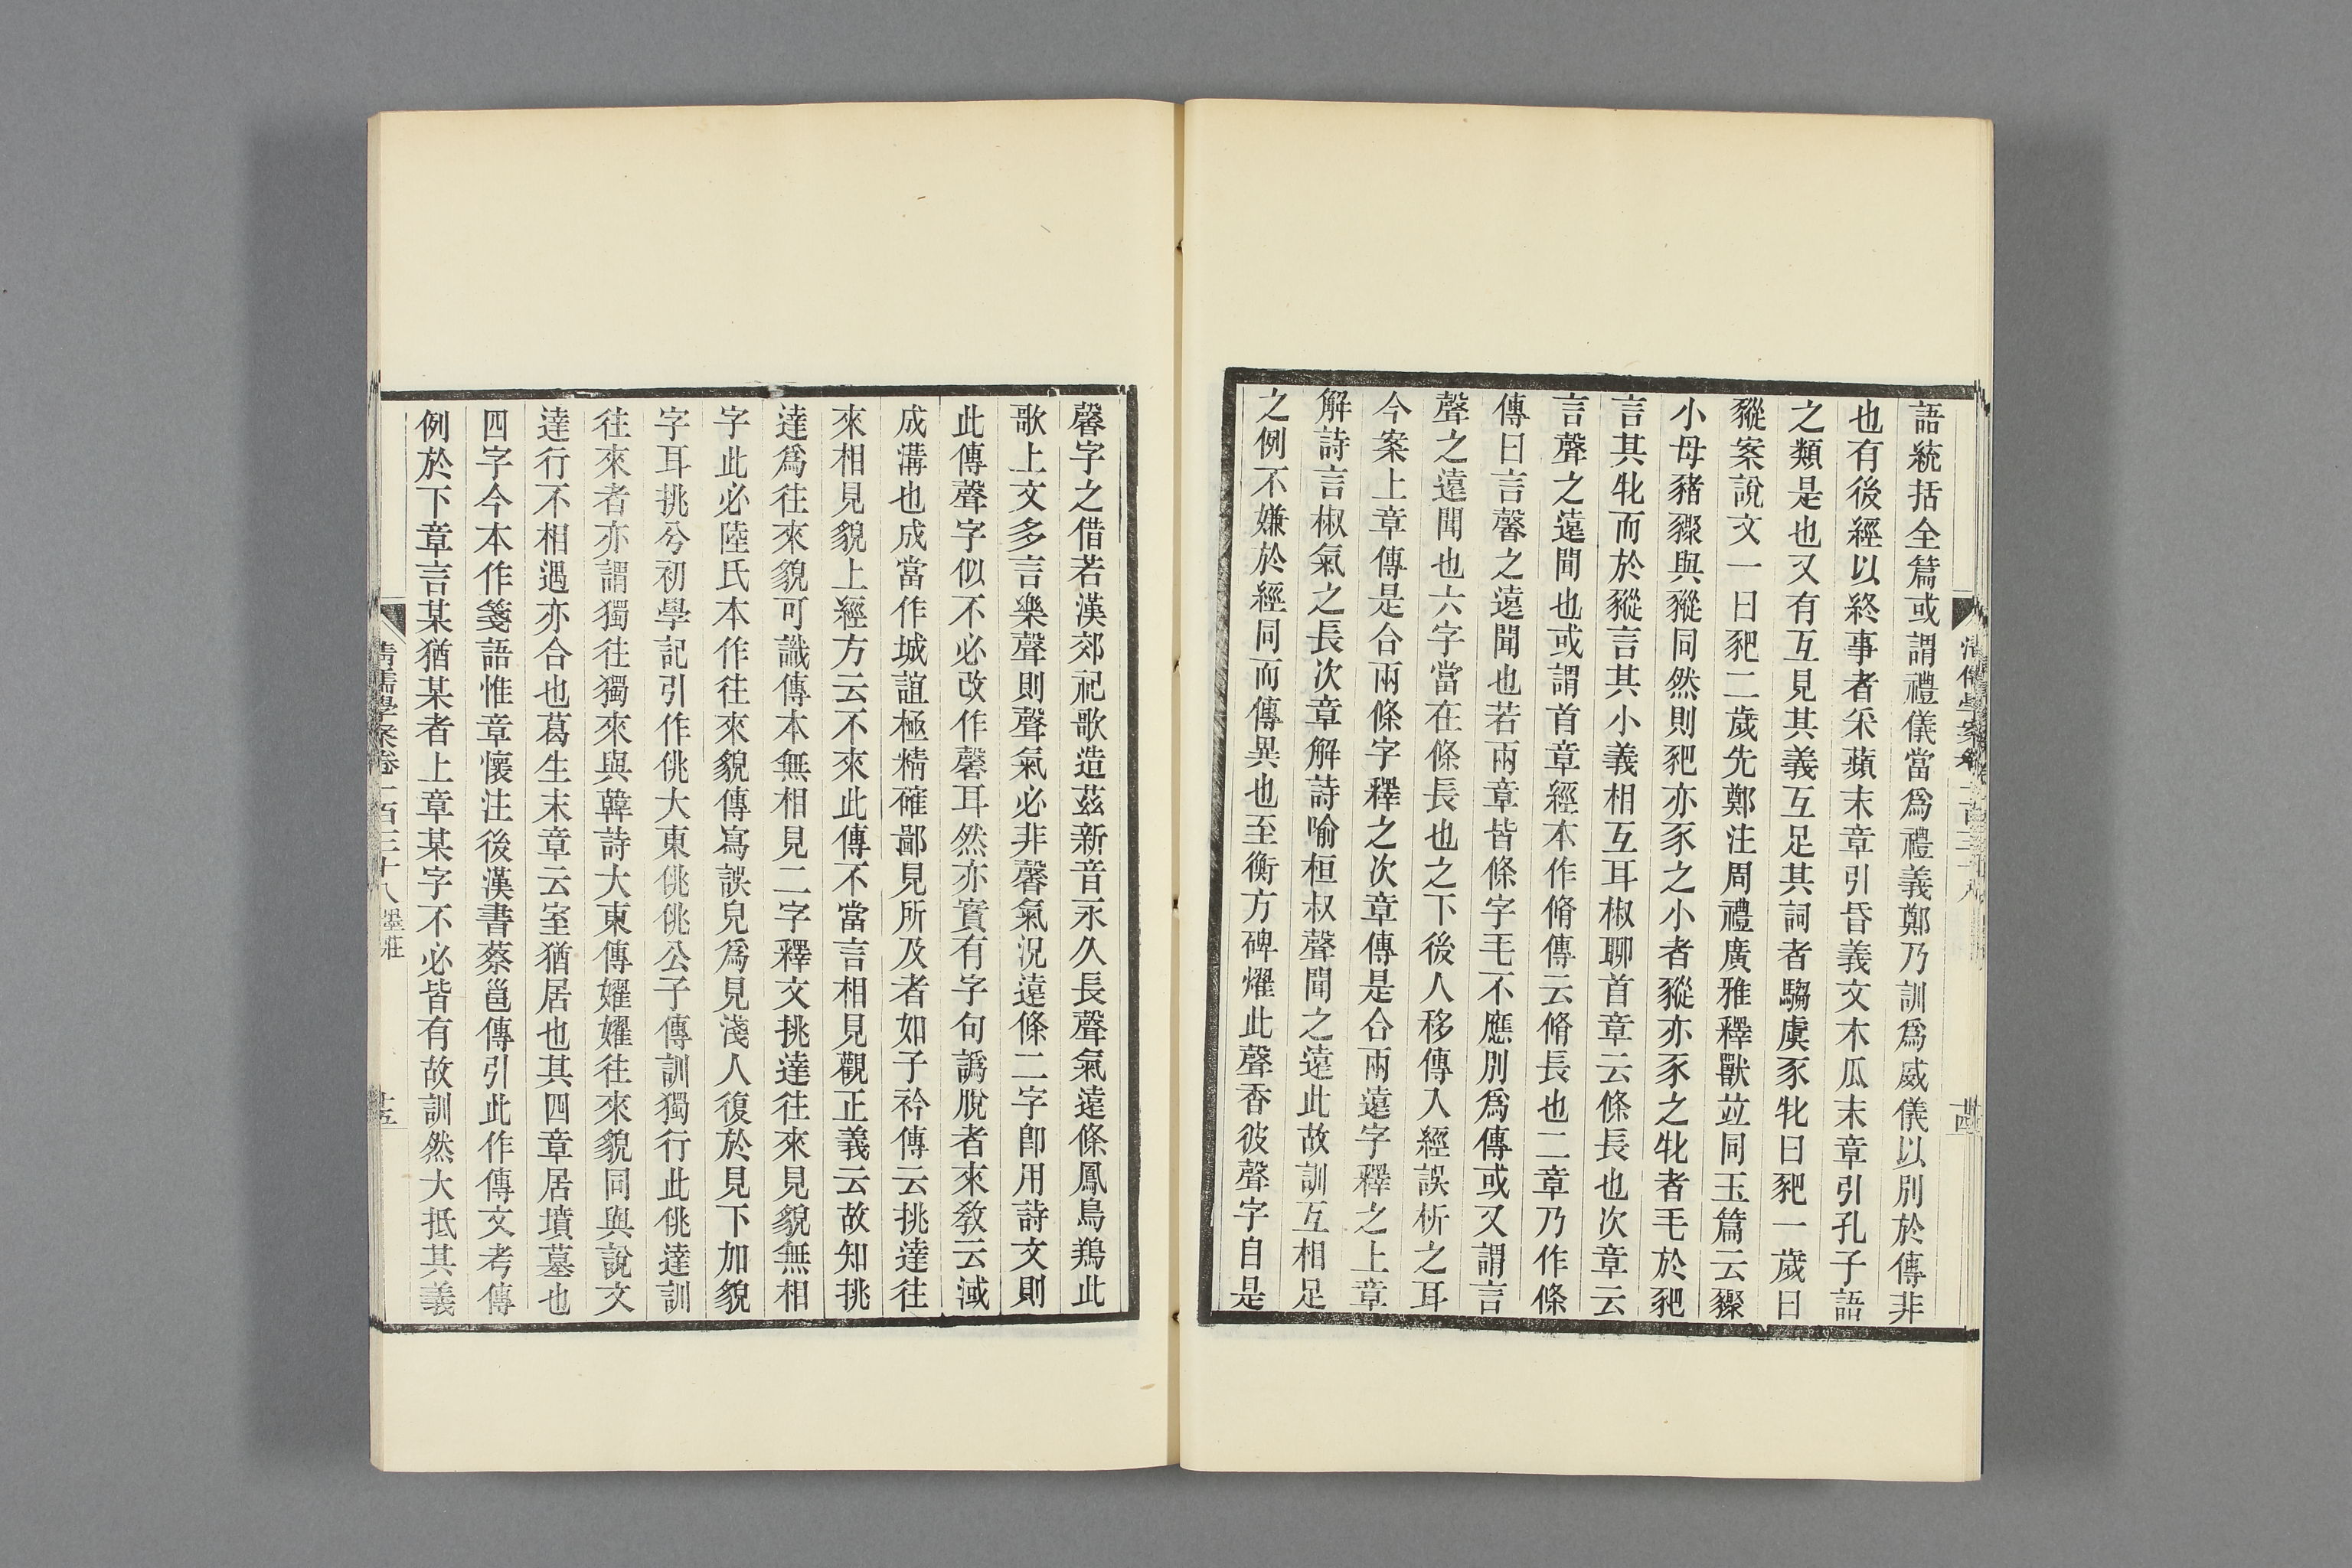 語統括全篇或謂禮儀當爲禮義鄭乃訓爲威儀以別於傳非
也有後經以終事者采蘋末章引昏義文木瓜末章引孔子語
之類是也又有互見其義互足其詞者騶虞豕牝曰豝一歲曰
豵案說文一曰豝二歲先鄭注周禮廣雅釋獸竝同玉篇云豵
小母豬豵與豵同然則豝亦豕之小者豵亦豕之牝者毛於豝
言其牝而於豵言其小義相互耳椒聊首章云條長也次章云
言聲之遠聞也或謂首章經本作脩傳云脩長也二章乃作條
傳曰言馨之遠聞也若兩章皆條字毛不應別爲傳或又謂言
聲之遠聞也六字當在條長也之下後人移傳入經誤析之耳
今案上章傳是合兩條字釋之次章傳是合兩遠字釋之上章
解詩言椒氣之長次章解詩喻桓叔聲聞之遠此故訓互相足
之例不嫌於經同而傳異也至衡方碑燿此聲香彼聲字自是
馨字之借若漢郊祀歌造茲新音永久長聲氣遠條鳳鳥鶈此
歌上文多言樂聲則聲氣必非馨氣況遠條二字卽用詩文則
此傳聲字似不必改作馨耳然亦實有字句譌脫者來教云淢
成溝也成當作城誼極精確鄙見所及者如子衿傳云挑達往
來相見貌上經方云不來此傳不當言相見觀正義云故知挑
達爲往來貌可識傳本無相見二字釋文挑達往來見貌無相
字此必陸氏本作往來貌傳寫誤皃爲見淺人復於見下加貌
字耳挑兮初學記引作佻大東佻佻公子傳訓獨行此佻達訓
往來者亦謂獨往獨來與韓詩大東傳嬥嬥往來貌同與說文
達行不相遇亦合也葛生末章云室猶居也其四章居墳墓也
四字今本作箋語惟章懷注後漢書蔡邕傳引此作傳文考傳
例於下章言某猶某者上章某字不必皆有故訓然大抵其義
清儒學案卷一百三十八 墨莊